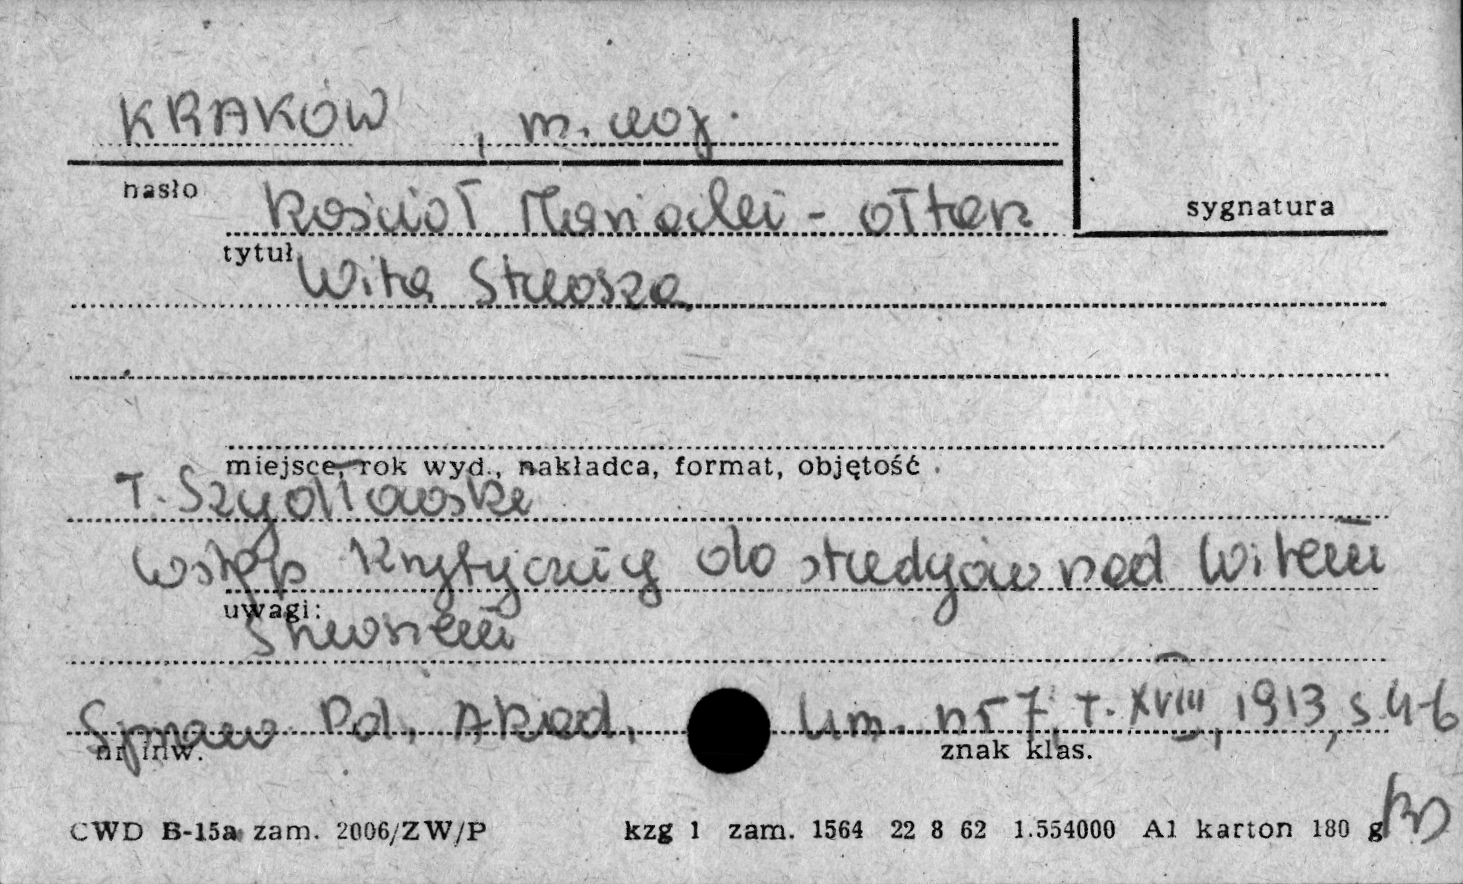 KRAKÓW , m. woj.
hasło
Kościół Mariacki - ołtarz
sygnatura
tytuł
Wita Stwosza
miejsce, rok wyd., nakładca, format, objętość
T. Szydłowski
Wstęp krytyczny do studyów nad Witem
uwagi:
Stwoszem
Spraw. Pol. Akad. Um. nr 7, T. XVIII, 1913, s. 4-6
nr inw.
znak klas.
CWD B-15a zam. 2006/ZW/P kzg 1 zam. 1564 22 8 62 1.554000 A1 karton 180 g